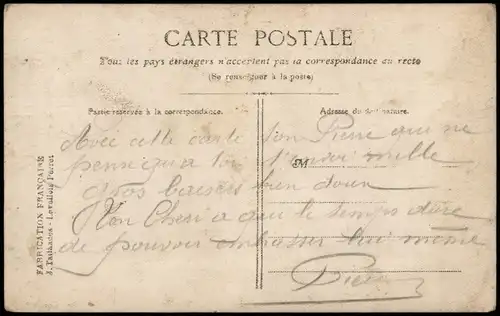 CARTE POSTALE
Tous les pays étrangers n'acceptent pas la correspondance au recto
(Se renseigner à la poste)
Partie réservée à la correspondance.
Adresse du destinataire.
M
FABRICATION FRANÇAISE
J. - Levallois-Perret
Avec cette carte ton Pierre qui ne
pense qu'a toi t'envoi mille
gros baisers bien doux
Ton Cheri a que le temps dure
de pouvoir embrasser lui même
Pierre